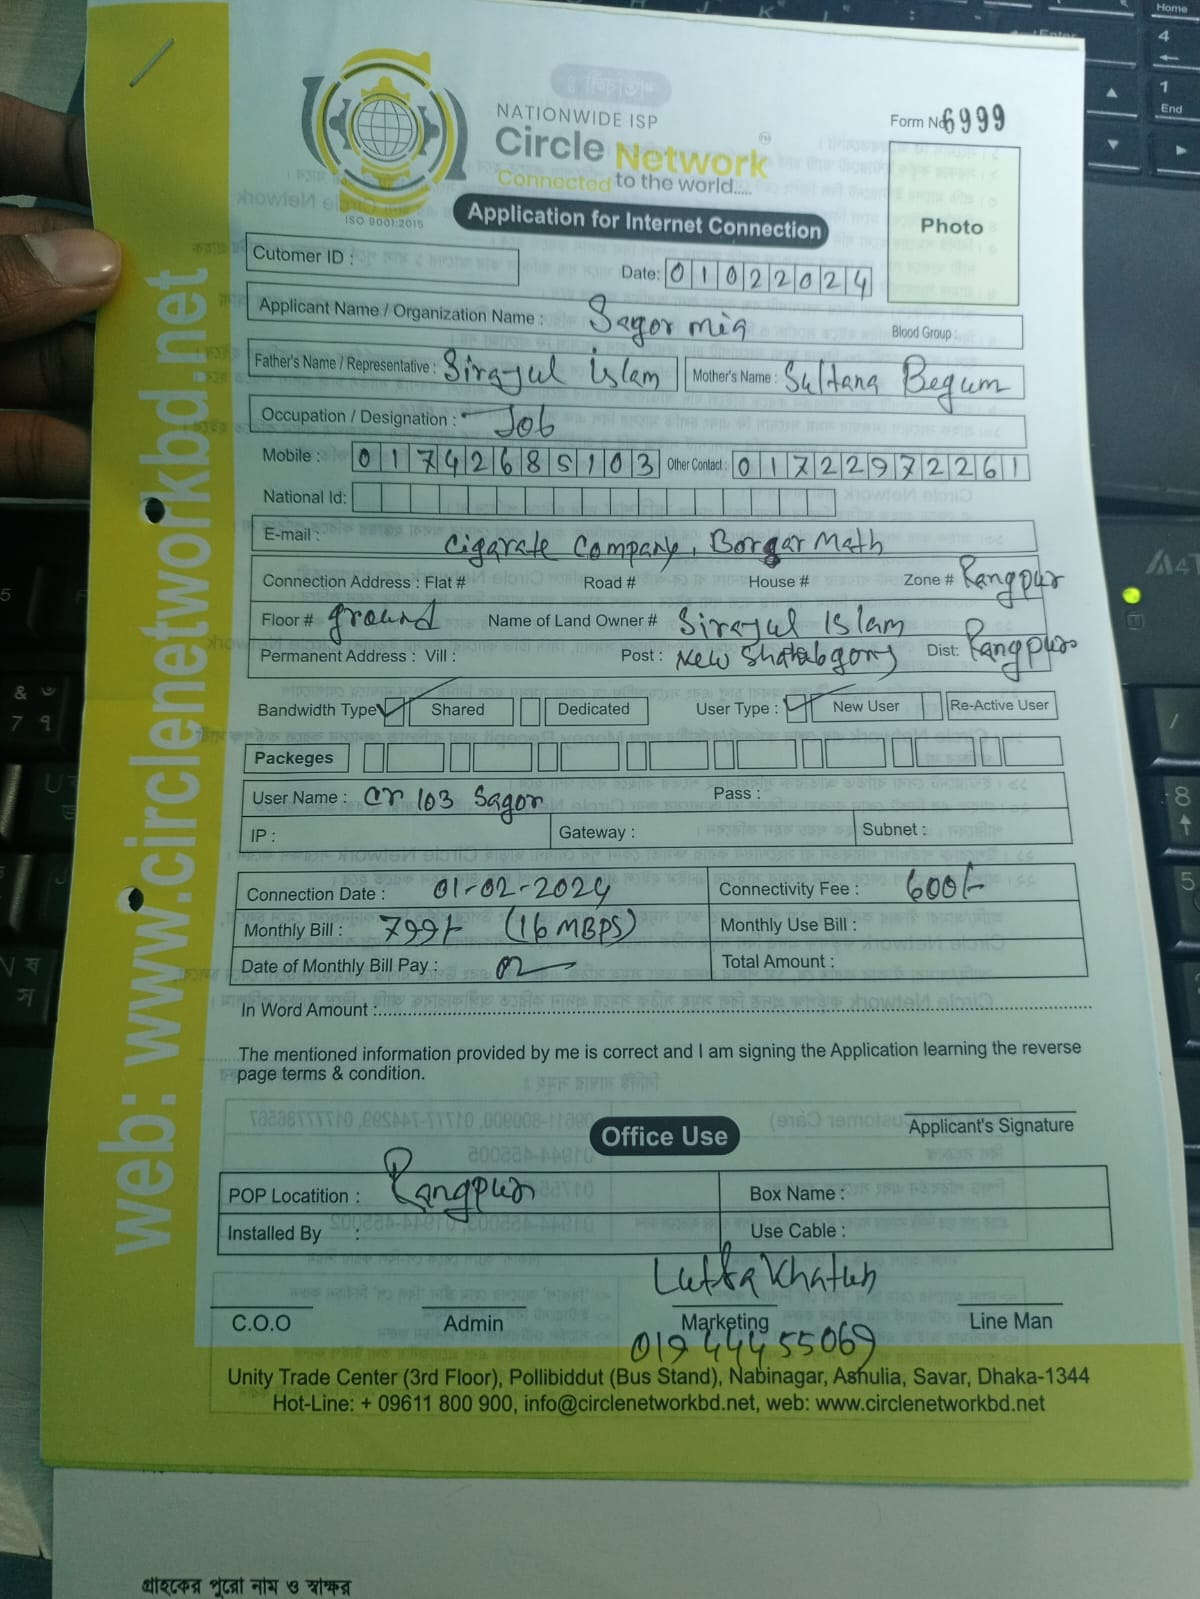 NATIONWIDE ISP
Circle Network
Connected to the world.....
ISO 9001:2015
Form No 6999
Photo
Application for Internet Connection
Cutomer ID :
Date: 01022024
Applicant Name / Organization Name : Sagor mia
Blood Group :
Father's Name / Representative : Sirajul islam
Mother's Name : Sultana Begum
Occupation / Designation : Job
Mobile : 01742685103 Other Contact : 01722972261
National Id:
E-mail :
Cigarate Company, Borgar Math
Connection Address : Flat # Road # House # Zone # Rangpur
Floor # ground Name of Land Owner # Sirajul Islam
Permanent Address : Vill : Post : New Dist: Rangpur
Bandwidth Type Shared Dedicated User Type : New User Re-Active User
Packeges
User Name : Cr 103 Sagor Pass :
IP : Gateway : Subnet :
Connection Date : 01-02-2024 Connectivity Fee : 600/-
Monthly Bill : 799/- (16 MBPS) Monthly Use Bill :
Date of Monthly Bill Pay : 02 Total Amount :
In Word Amount :
The mentioned information provided by me is correct and I am signing the Application learning the reverse
page terms & condition.
Applicant's Signature
Office Use
POP Locatition : Rangpur Box Name :
Installed By : Use Cable :
Lutfa Khatun
C.O.O Admin Marketing Line Man
01944455069
Unity Trade Center (3rd Floor), Pollibiddut (Bus Stand), Nabinagar, Ashulia, Savar, Dhaka-1344
Hot-Line: + 09611 800 900, info@circlenetworkbd.net, web: www.circlenetworkbd.net
web: www.circlenetworkbd.net
গ্রাহকের পুরো নাম ও স্বাক্ষর